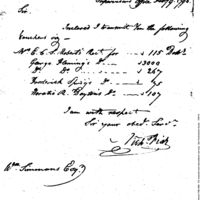 Sir.
Inclosed I transmit You the following
Vouchers viz
Mr E. C. L. Roberts Rect for — 115 Dolls
George Fleming's Do — $3000
Do Do — $267
Frederick Do — $75
Horatio R. Do — $107
I am with respect
Sir your obed. Servt.
Wm Simmons Esqr